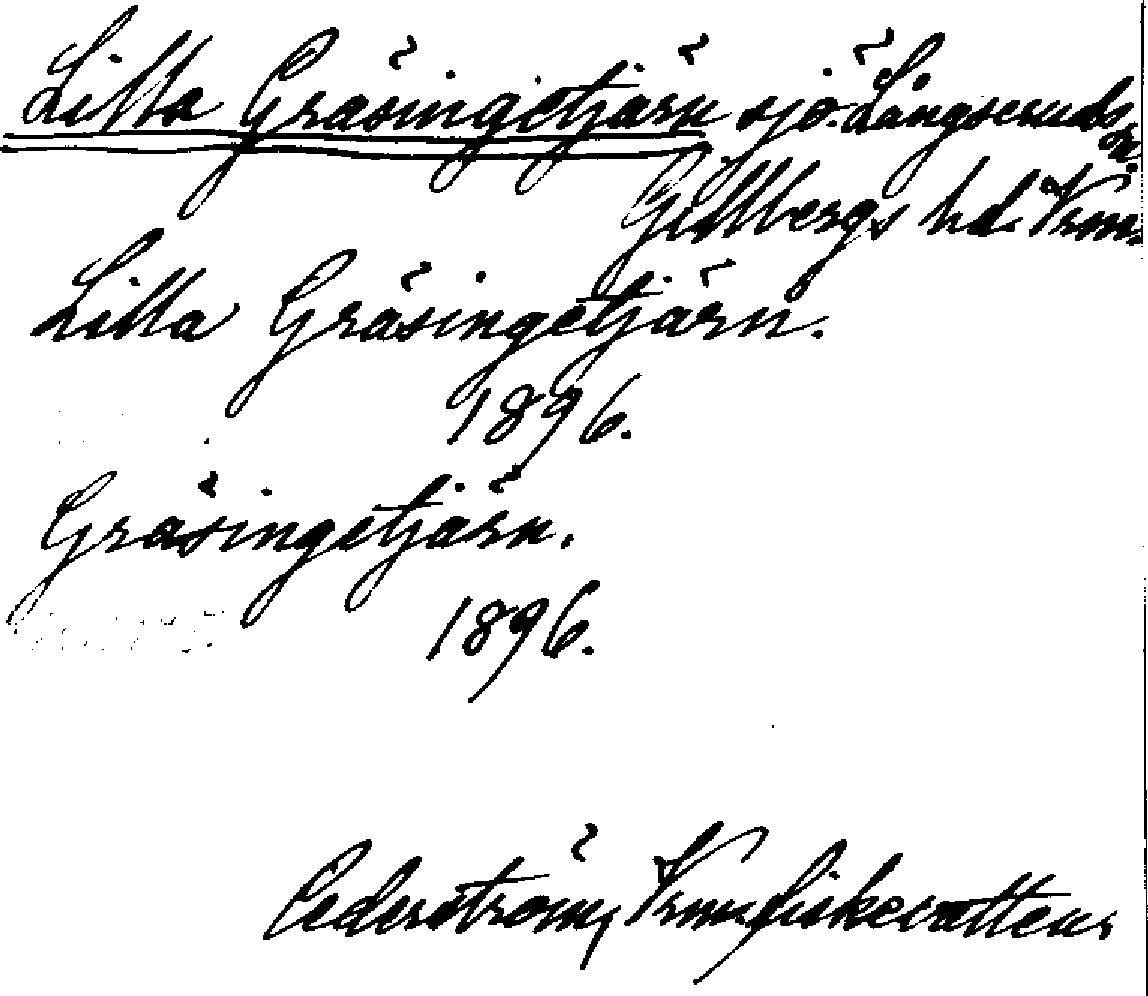 Lilla Gräsingetjärn sjö. Långseruds sn.
Gillbergs hd. Vrm.
Lilla Gräsingetjärn.
1896.
Gräsingetjärn.
1896.
Cederström, Vrm. fiskevatten,